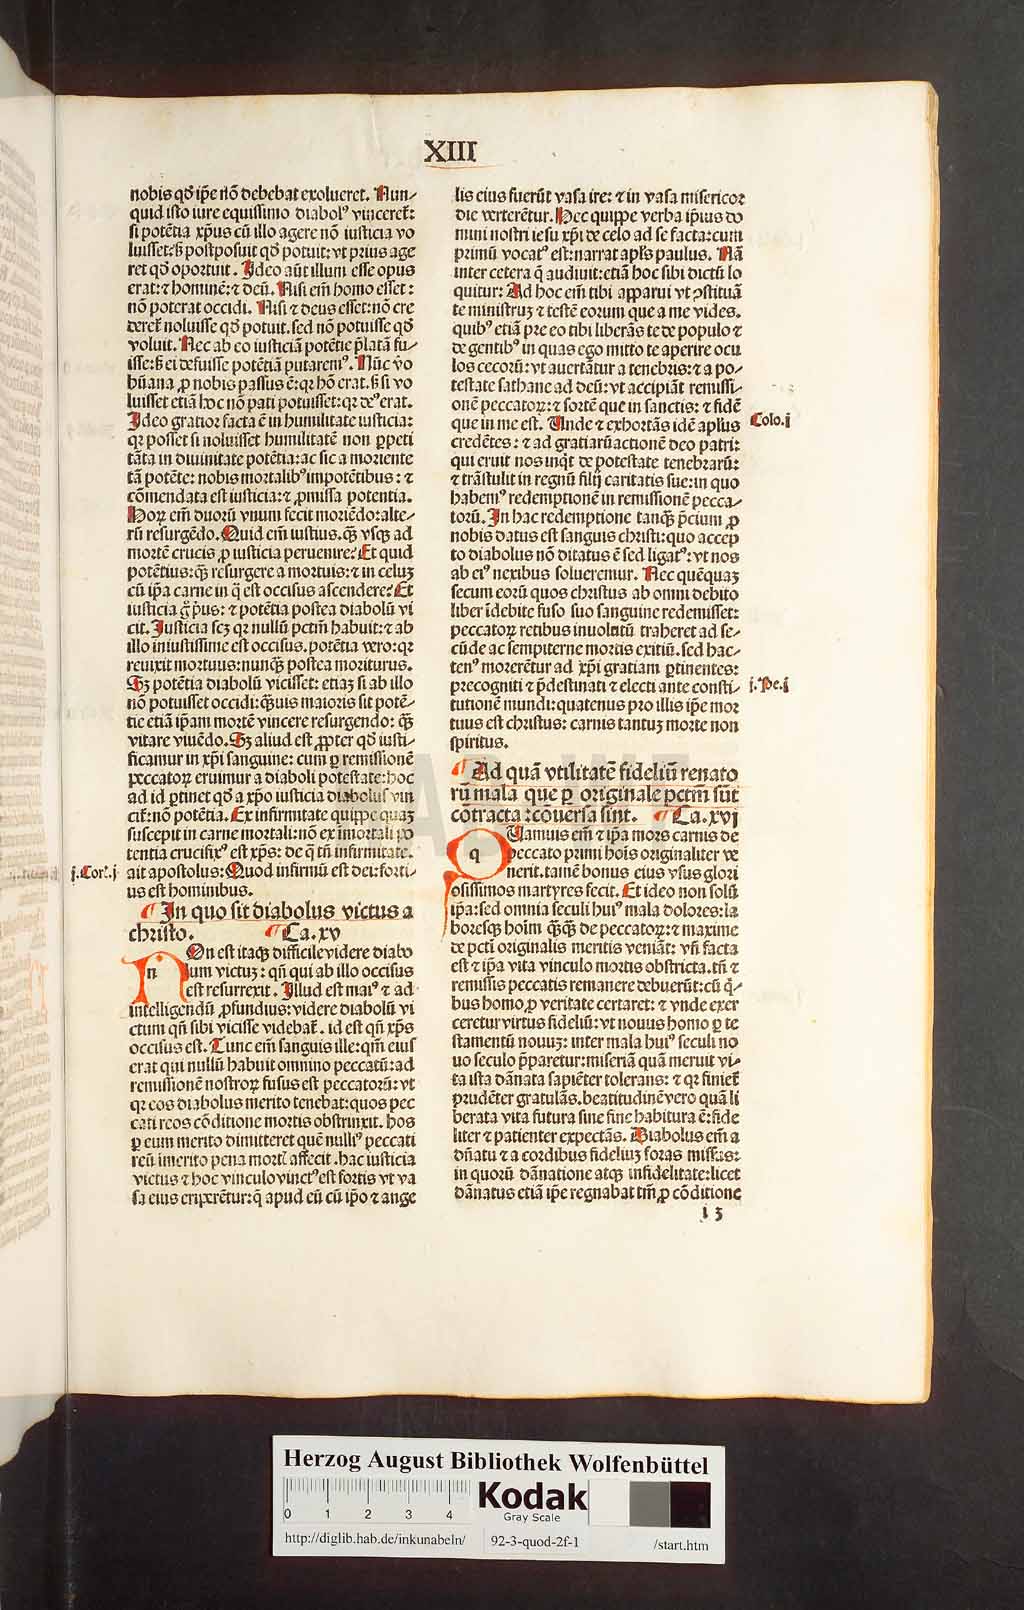 XIII
nobis qđ ip̄e nō debebat exolueret. Nun-
quid isto iure equissimo diabolꝰ vinceret̄:
si potētia xp̄us cū illo agere nō iusticia vo
luisset: sꝫ postposuit qđ potuit: vt prius age
ret qđ oportuit. Ideo aūt illum esse opus
erat: ⁊ hominē: ⁊ deū. Nisi em̄ homo esset:
nō poterat occidi. Nisi ⁊ deus esset: nō cre
deret̄ noluisse qđ potuit. sed nō potuisse qđ
voluit. Nec ab eo iusticiā potētie p̄latā fu-
isse: sꝫ ei defuisse potētiā putaremꝰ. Nūc v̄o
hūana ꝓ nobis passus ē: qꝛ hō erat. sꝫ si vo
luisset etiā hoc nō pati potuisset: qꝛ deꝰ erat.
Ideo gratior facta ē in humilitate iusticia:
qꝛ posset si noluisset humilitatē non ꝑpeti
tāta in diuinitate potētia: ac sic a moriente
tā potēte: nobis mortalibꝰ impotētibus: ⁊
cōmendata est iusticia: ⁊ ꝓmissa potentia.
Hoꝝ em̄ duorū vnum fecit moriēdo: alte-
rū resurgēdo. Quid em̄ iustius. qꝫ vsqꝫ ad
mortē crucis ꝓ iusticia peruenire? Et quid
potētius: qꝫ resurgere a mortuis: ⁊ in celuꝫ
cū ip̄a carne in q̄ est occisus ascendere? Et
iusticia g̊ p̄us: ⁊ potētia postea diabolū vi
cit. Justicia scꝫ qꝛ nullū pctm̄ habuit: ⁊ ab
illo iniustissime est occisus. potētia vero: qꝛ
reuixit mortuus: nunqꝫ postea moriturus.
Sꝫ potētia diabolū vicisset: etiaꝫ si ab illo
nō potuisset occidi: qꝫuis maioris sit potē-
tie etiā ip̄am mortē vincere resurgendo: qꝫ
vitare viuēdo. Sꝫ aliud est ꝓpter qđ iusti-
ficamur in xp̄i sanguine: cum ꝑ remissionē
peccatoꝝ eruimur a diaboli potestate: hoc
ad id ꝑtinet qđ a xp̄o iusticia diabolus vin
cit̄: nō potētia. Ex infirmitate quippe quaꝫ
suscepit in carne mortali: nō ex īmortali po
tentia crucifixꝰ est xp̄s: de q̄ tn̄ infirmitate.
j. Cor. j
ait apostolus: Quod infirmū est dei: forti-
us est hominibus.
¶ In quo sit diabolus victus a
christo. ¶ Ca. xv
n
On est itaqꝫ difficile videre diabo
lum victuꝫ: qn̄ qui ab illo occisus
est resurrexit. Illud est maiꝰ ⁊ ad
intelligendū ꝓfundius: videre diabolū vi
ctum qn̄ sibi vicisse videbat̄. id est qn̄ xp̄s
occisus est. Tunc em̄ sanguis ille: qm̄ eius
erat qui nullū habuit omnino peccatū: ad
remissionē nostroꝝ fusus est peccatorū: vt
qꝛ eos diabolus merito tenebat: quos pec
cati reos cōditione mortis obstrinxit. hos
ꝑ eum merito dimitteret quē nulliꝰ peccati
reū īmerito pena mortꝭ affecit. hac iusticia
victus ⁊ hoc vinculo vinctꝰ est fortis vt va
sa eius eriperētur: q̄ apud eū cū ip̄o ⁊ ange
lis eius fuerūt vasa ire: ⁊ in vasa misericoꝛ
die verterētur. Hec quippe verba ip̄ius do
mini nostri iesu xp̄i de celo ad se facta: cum
primū vocatꝰ est: narrat apl̄s paulus. Nā
inter cetera q̄ audiuit: etiā hoc sibi dictū lo
quitur: Ad hoc em̄ tibi apparui vt ꝯstituā
te ministruꝫ ⁊ testē eorum que a me vides.
quibꝰ etiā pre eo tibi liberās te de populo ⁊
de gentibꝰ in quas ego mitto te aperire ocu
los cecorū: vt auertātur a tenebris: ⁊ a po-
testate sathane ad deū: vt accipiāt remissi-
onē peccatoꝝ: ⁊ sortē que in sanctis: ⁊ fidē
que in me est. Unde ⁊ exhortās idē apl̄us
Colo. j
credētes: ⁊ ad gratiarū actionē deo patri:
qui eruit nos inqͭ de potestate tenebrarū:
⁊ trāstulit in regnū filij caritatis sue: in quo
habemꝰ redemptionē in remissionē pecca-
torū. In hac redemptione tanqꝫ p̄cium ꝓ
nobis datus est sanguis christi: quo accep
to diabolus nō ditatus ē sed ligatꝰ: vt nos
ab eiꝰ nexibus solueremur. Nec quēquaꝫ
secum eorū quos christus ab omni debito
liber īdebite fuso suo sanguine redemisset:
peccatoꝝ retibus inuolutū traheret ad se-
cūde ac sempiterne mortis exitiū. sed hac-
tenꝰ morerētur ad xp̄i gratiam ꝑtinentes:
precogniti ⁊ p̄destinati ⁊ electi ante consti-
j. Pe. j
tutionē mundi: quatenus pro illis ip̄e mor
tuus est christus: carnis tantuꝫ morte non
spiritus.
¶ Ad quā vtilitatē fideliū renato
rū mala que ꝑ originale pctm̄ sūt
cōtracta: cōuersa sint. ¶ Ca. xvj
q
Uamuis em̄ ⁊ ip̄a mors carnis de
peccato primi hoīs originaliter ve
nerit. tamē bonus eius vsus glori
osissimos martyres fecit. Et ideo non solū
ip̄a: sed omnia seculi huiꝰ mala dolores: la
boresqꝫ hoīm qꝫqꝫ de peccatoꝝ: ⁊ maxime
de pcti originalis meritis veniāt: vn̄ facta
est ⁊ ip̄a vita vinculo mortis obstricta. tn̄ ⁊
remissis peccatis remanere debuerūt: cū q̄-
bus homo ꝓ veritate certaret: ⁊ vnde exer
ceretur virtus fideliū: vt nouus homo ꝑ te
stamentū nouuꝫ: inter mala huiꝰ seculi no
uo seculo p̄paretur: miseriā quā meruit vi-
ta ista dānata sapiēter tolerans: ⁊ qꝛ finiet̄
prudēter gratulās. beatitudinē vero quā li
berata vita futura sine fine habitura ē: fide
liter ⁊ patienter expectās. Diabolus em̄ a
dn̄atu ⁊ a cordibus fideliuꝫ foras missus:
in quorū dānatione atqꝫ infidelitate: licet
dānatus etiā ip̄e regnabat tm̄ ꝓ cōditione
l 3
Herzog August Bibliothek Wolfenbüttel
0 1 2 3 4
Kodak
Gray Scale
http://diglib.hab.de/inkunabeln/ 92-3-quod-2f-1 /start.htm